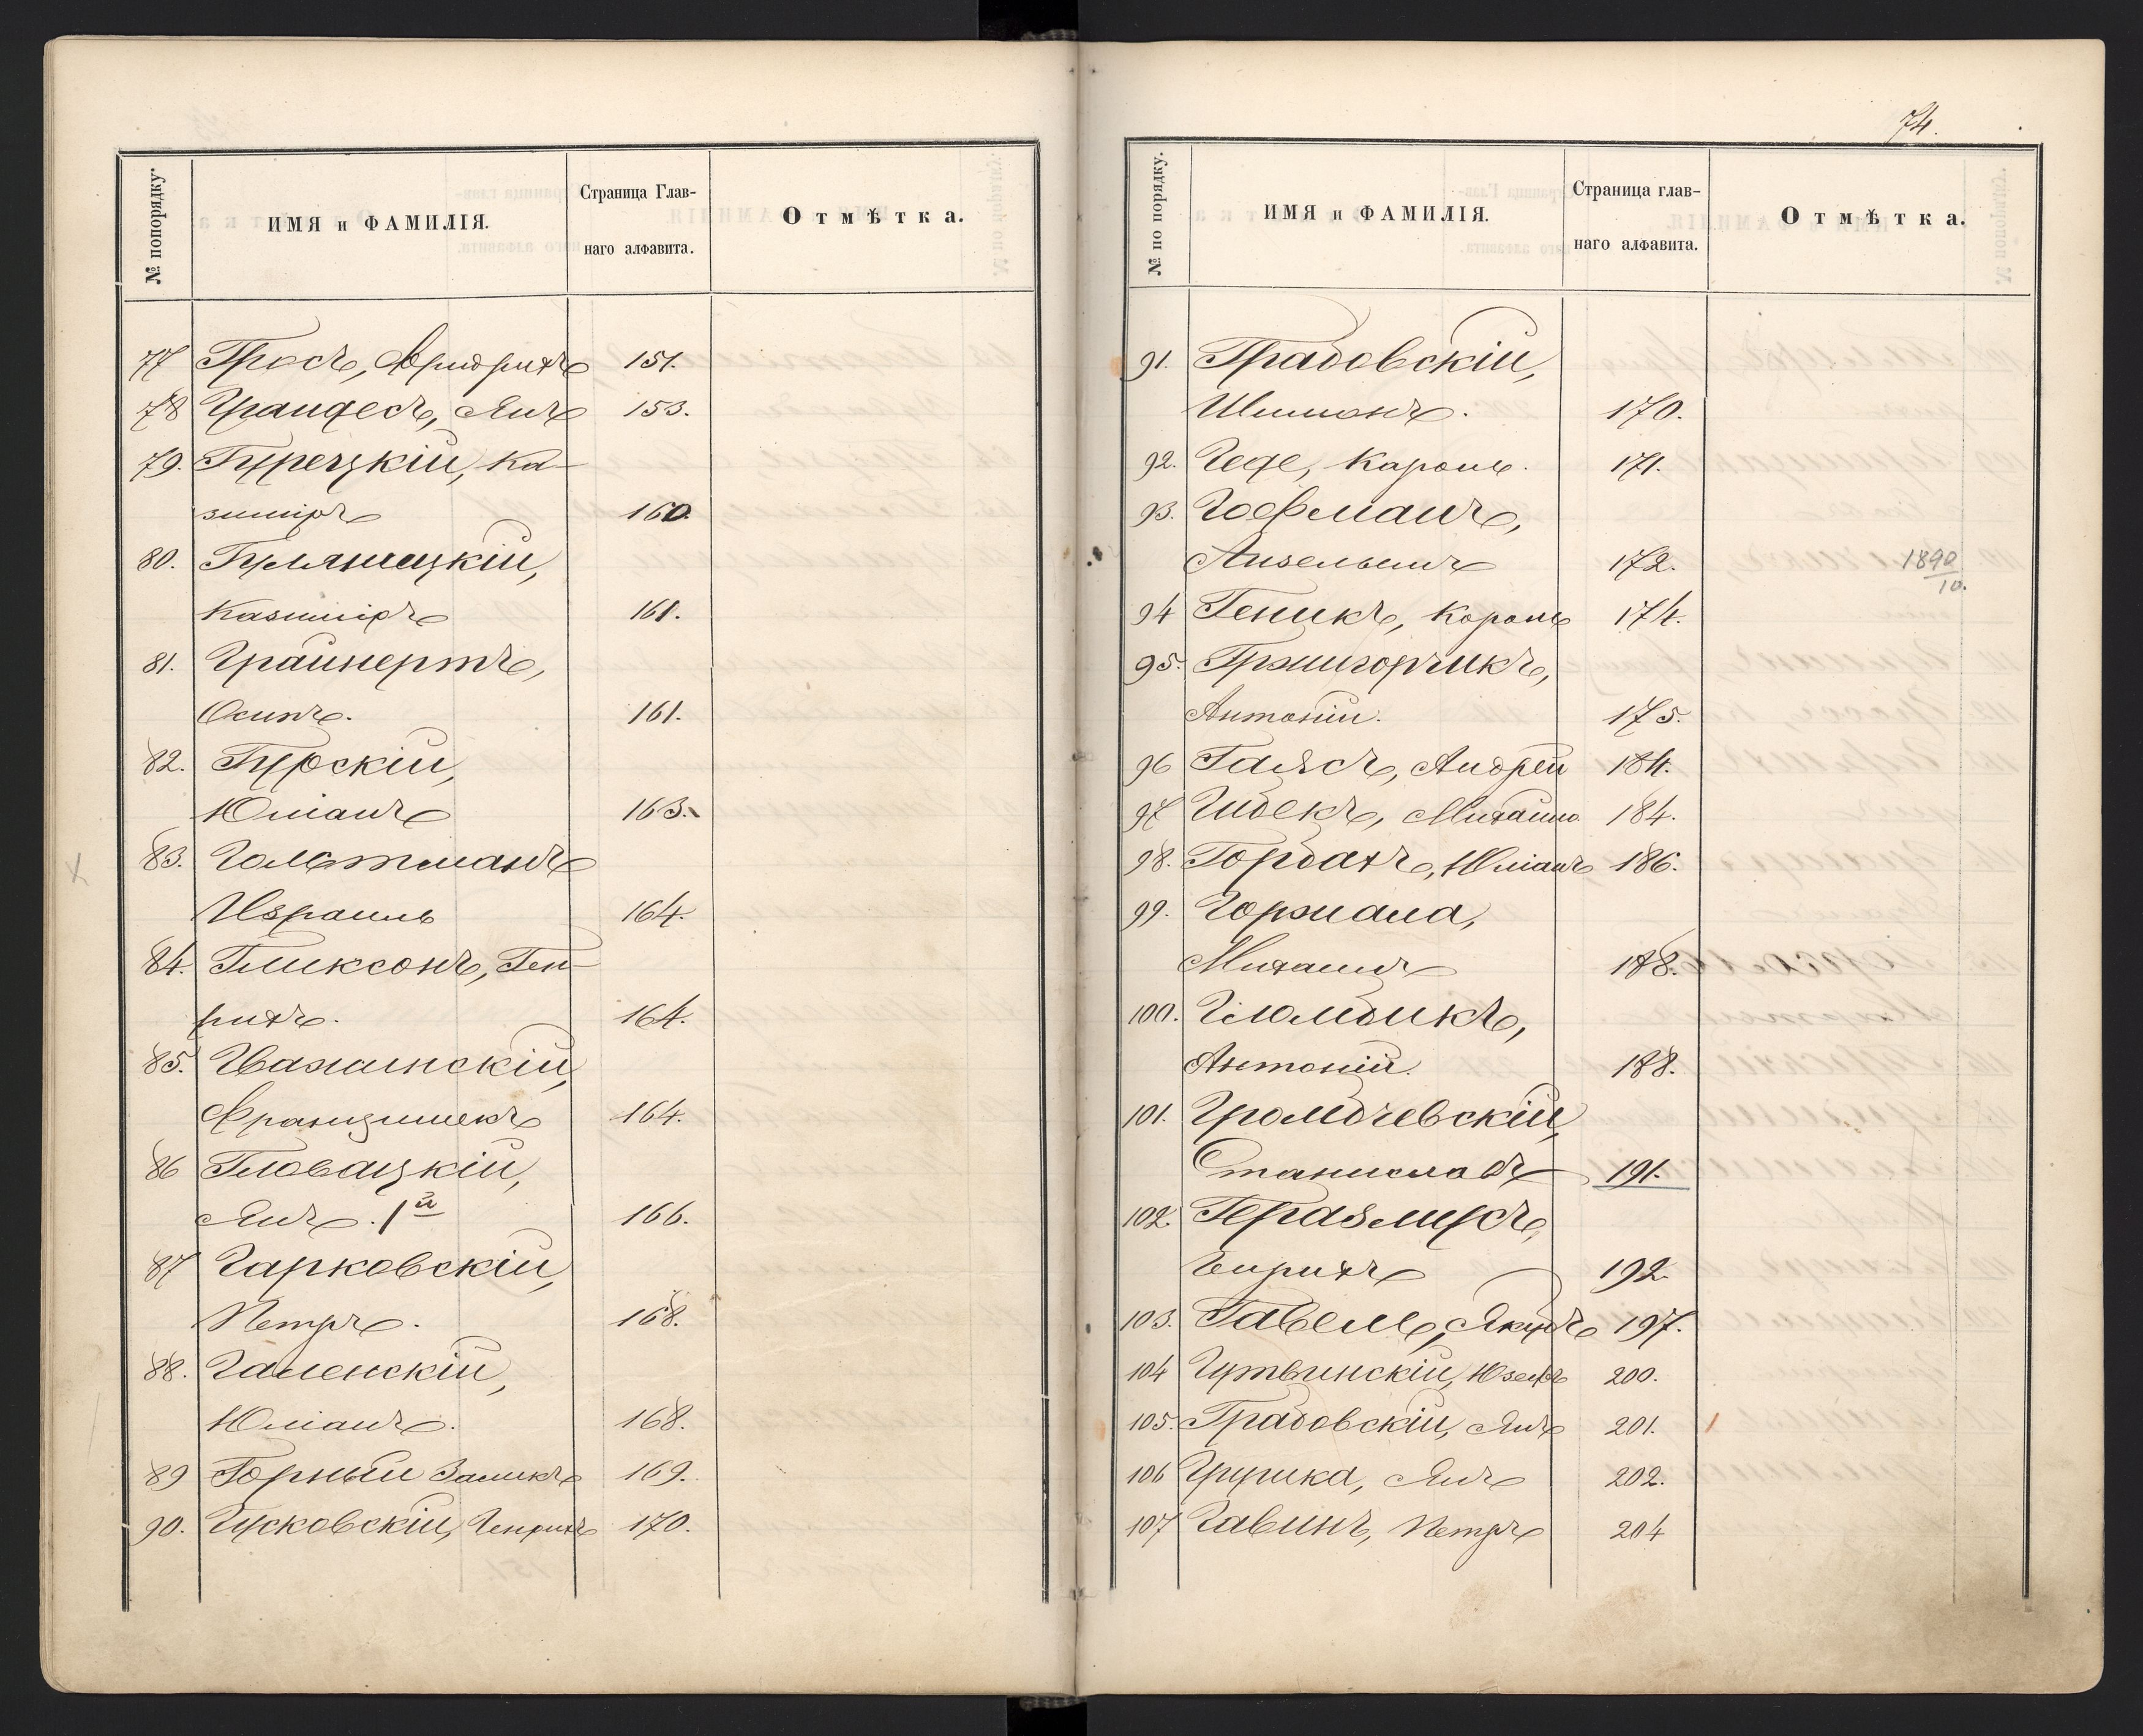 № попорядку.
ИМЯ и ФАМИЛІЯ.
Страница Глав-
наго алфавита.
Отмѣтка.
77 Гросъ, Фридрихъ 151.
78 Грандесъ, Янъ 153.
79. Гурецкій, Ка-
зиміръ 160.
80. Гуляницкій,
Казиміръ 161.
81. Грайнертъ,
Осипъ. 161.
82. Гурскій,
Юліанъ 163.
83. Гольтманъ
Израиль 164.
84. Гликсонъ, Ген-
рихъ. 164.
85. Гважинскій,
Францишекъ 164.
86 Гловацкій,
Янъ. 1й 166.
87 Гарковскій,
Петръ. 168.
88. Галенскій,
Юліанъ. 168.
89 Горный Заликъ 169.
90. Гусковскій, Генрихъ 170.
74.
№ по порядку.
ИМЯ и ФАМИЛІЯ.
Страница глав-
наго алфавита.
Отмѣтка.
91. Градовскій,
Шимонъ. 170.
92. Геде, Кароль. 171.
93. Гофманъ,
Ансельмъ 172. 1890/10.
94 Геникъ, Кароль 174.
95. Гржигорчикъ,
Антоній. 175.
96 Галясъ, Андрей 184.
97 Гидекъ, Михаилъ 184.
98. Гордахъ, Юліанъ 186.
99. Горжала,
Михаилъ 188.
100.
Антоній. 188.
101. Громбчевскій,
Станиславъ 191.
102. Геразмусъ,
Гинрихъ 192.
103. Гавель, Якубъ 197.
104 Гутвинскій, Юзефъ 200.
105. Градовскій, Янъ 201.
106 Грушка, Янъ 202.
107 Гавинъ, Петръ 204